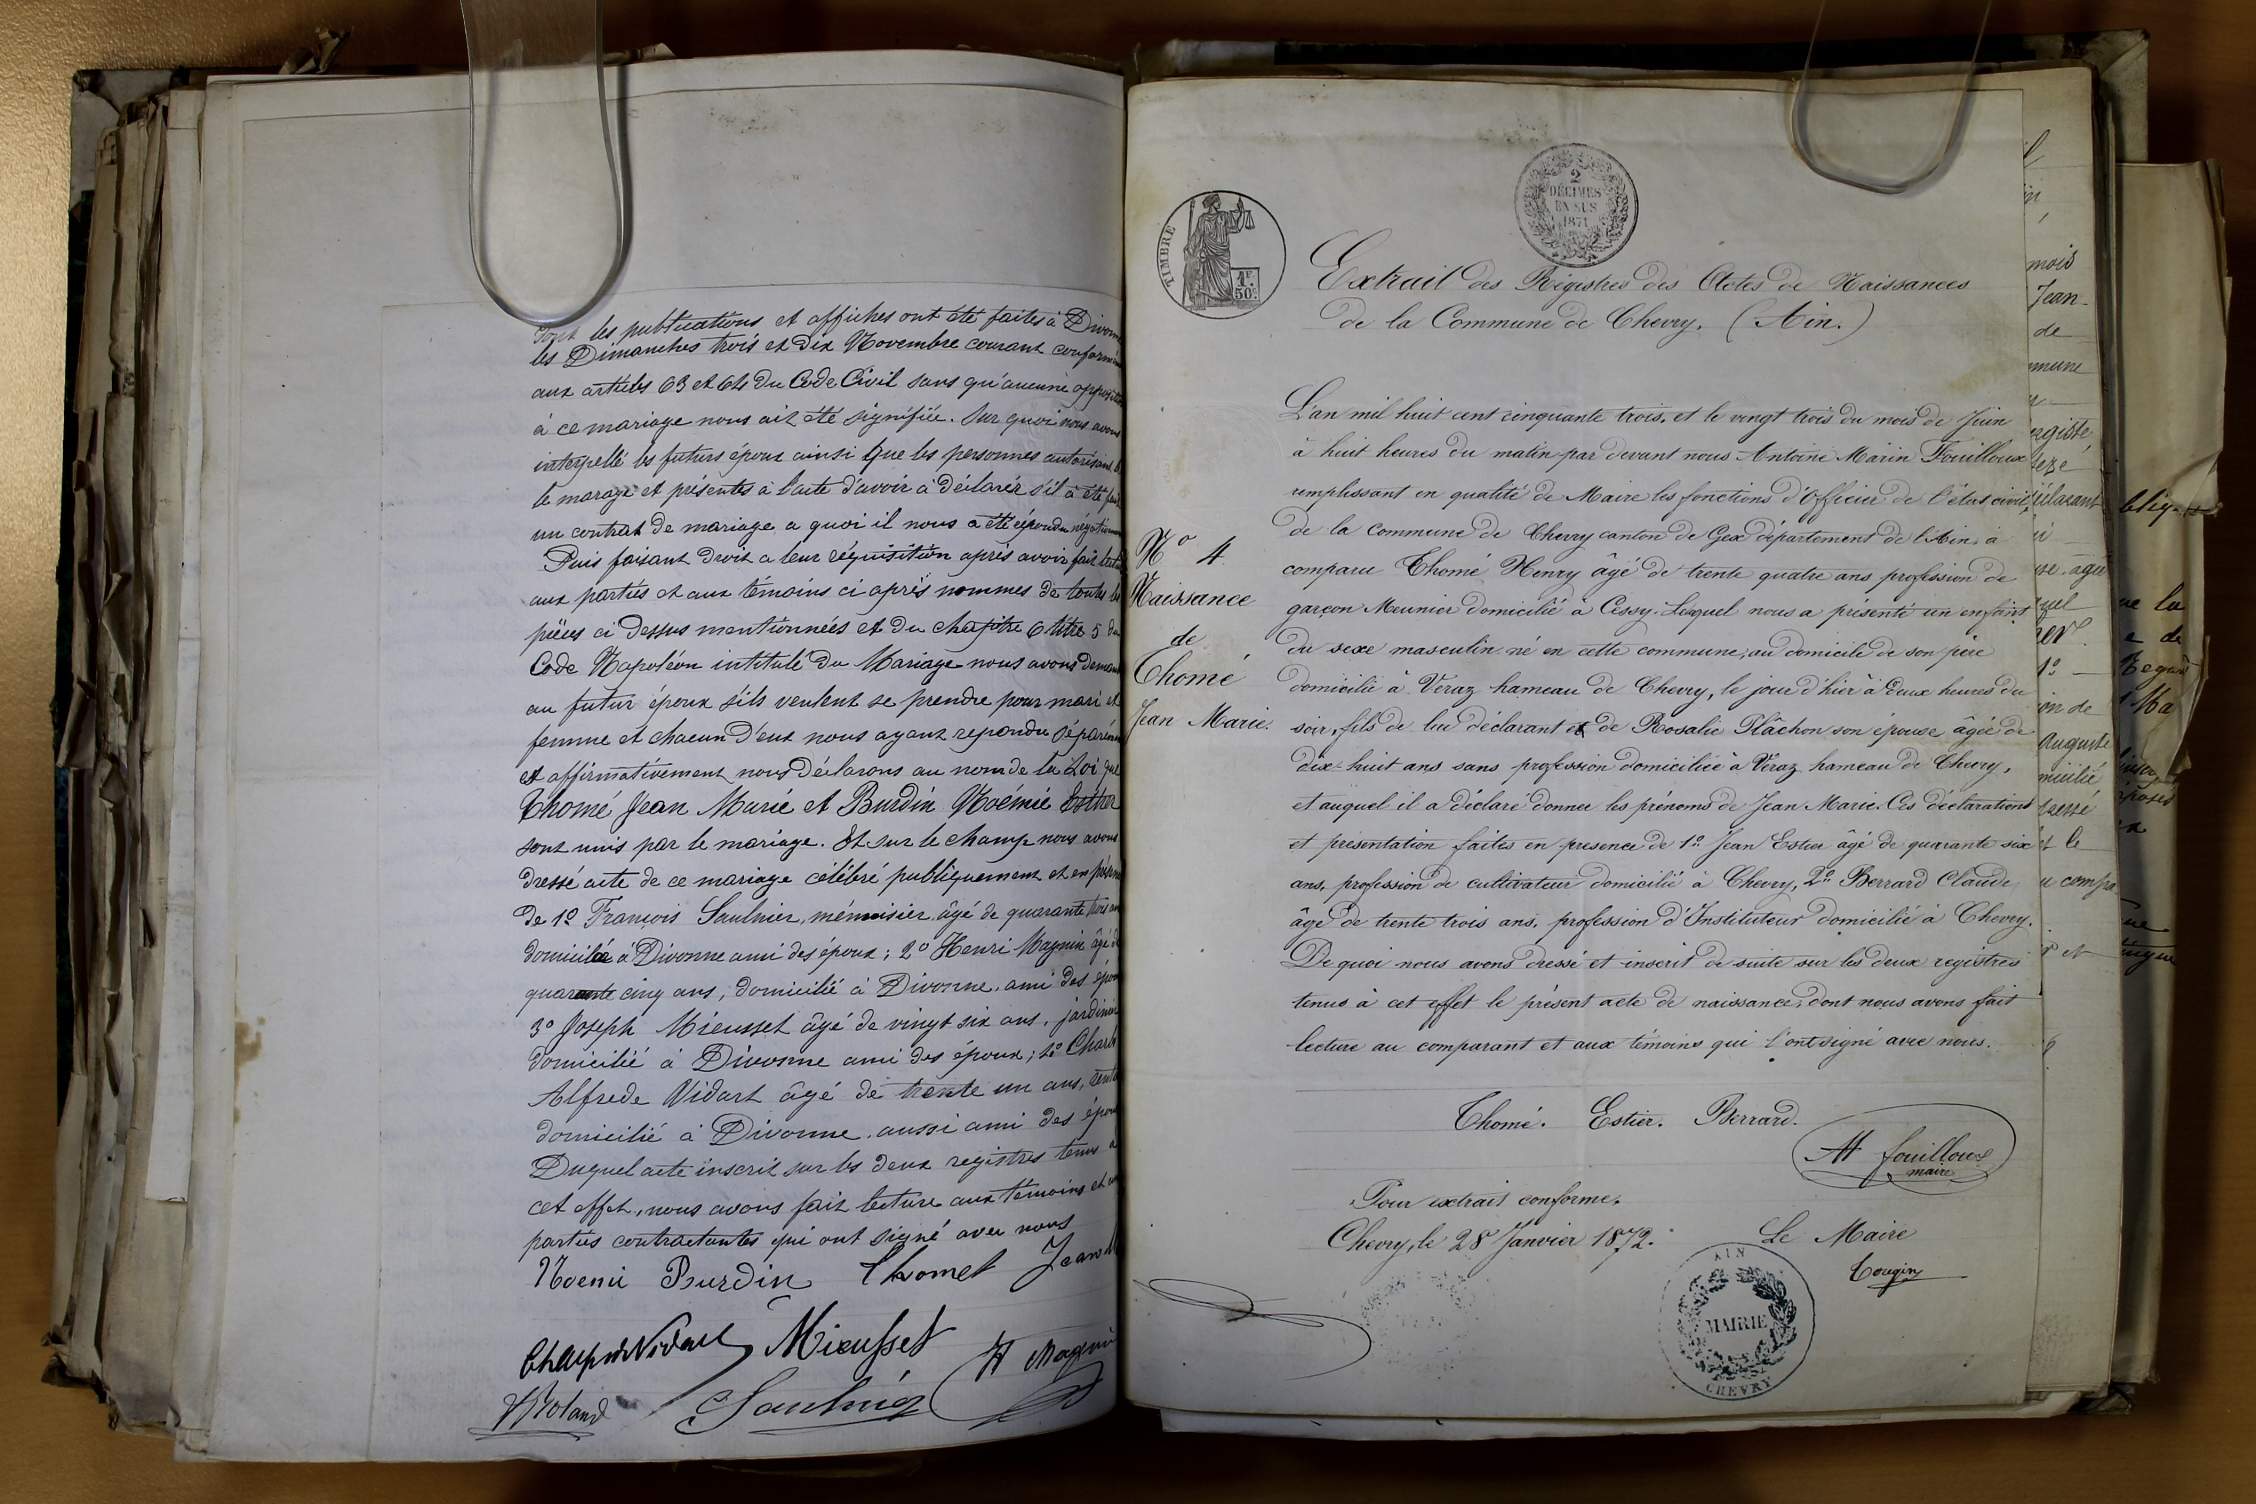 dont les publications et affiches ont été faites à Divonne
les Dimanches trois et dix Novembre courant
aux articles 63 et 64 du Code Civil sans qu'aucune
à ce mariage nous ait été signifiée. Sur quoi nous avons
interpellé les futurs époux ainsi que les personnes autorisant
le marage et présentes à l'acte d'avoir à déclarer s'il a été fait
un contrat de mariage a quoi il nous a été répondu
Puis faisant droit a leur réquisition après avoir fait
aux parties et aux témoins ci après nommés de toutes les
pièces ci dessus mentionnées et du chapitre 6 titre 5 du
Code Napoléon intitulé du Mariage nous avons
au futur époux s'ils veulent se prendre pour mari et
femme et chacun d'eux nous ayant repondu
et affirmativement nous déclarons au nom de la Loi que
Thomé Jean Marie et Burdin Noémie Esther
sont unis par le mariage. Et sur le champ nous avons
dressé acte de ce mariage célébré publiquement et en
de 1º François Saulnier, ménuisier, âgé de quarante trois ans
domicilié à Divonne ami des époux; 2º Henri Magnin âgé de
quarante cinq ans, domicilié à Divonne, ami des époux
3º Joseph Mieusset âgé de vingt six ans, jardinier
domicilié à Divonne ami des époux; 4º
Alfrede Vidart âgé de trente un ans,
domicilié à Divonne, aussi ami des époux
Duquel acte inscrit sur les deux registres tenus à
cet effet, nous avons fait lecture aux témoins et
parties contractantes qui ont signé avec nous
Noemi Burdin Thomet Jean
Vidart Mieusset H Magnin
Roland Saulnier
TIMBRE
1F.
50c.
2
DÉCIMES
EN SUS
1871
Extrait des Régistres des Actes de Naissances
de la Commune de Chevry. (Ain.)
L'an mil huit cent cinquante trois, et le vingt trois du mois de Juin
à huit heures du matin par devant nous Antoine Marin Fouilloux
remplissant en qualité de Maire les fonctions d'Officier de l'état civil,
de la commune de Chevry canton de Gex département de l'Ain, a
comparu Thomé Henry âgé de trente quatre ans profession de
garçon Meunier domicilié à Cessy. Lequel nous a présenté un enfant
du sexe masculin né en cette commune, au domicile de son père
domicilié à Véraz hameau de Chevry, le jour d'hier à deux heures du
soir, fils de lui déclarant et de Rosalie Plâchon son épouse âgée de
dix-huit ans sans profession domiciliée à Véraz hameau de Chevry,
et auquel il a déclaré donner les prénoms de Jean Marie. Ces déclarations
et présentation faites en présence de 1º Jean Estier âgé de quarante six
ans, profession de cultivateur domicilié à Chevry, 2º Berrard Claude
âgé de trente trois ans, profession d'Instituteur domicilié à Chevry.
De quoi nous avons dressé et inscrit de suite sur les deux registres
tenus à cet effet le présent acte de naissance, dont nous avons fait
lecture au comparant et aux témoins qui l'ont signé avec nous.
Nº 4
Naissance
de
Thomé
Jean Marie.
Thomé. Estier. Berrard.
AM fouilloux
maire
Pour extrait conforme.
Chevry, le 28 Janvier 1872. Le Maire
Tougin
AIN
MAIRIE
CHEVRY
mois
Jean-
de
Auguste
et le